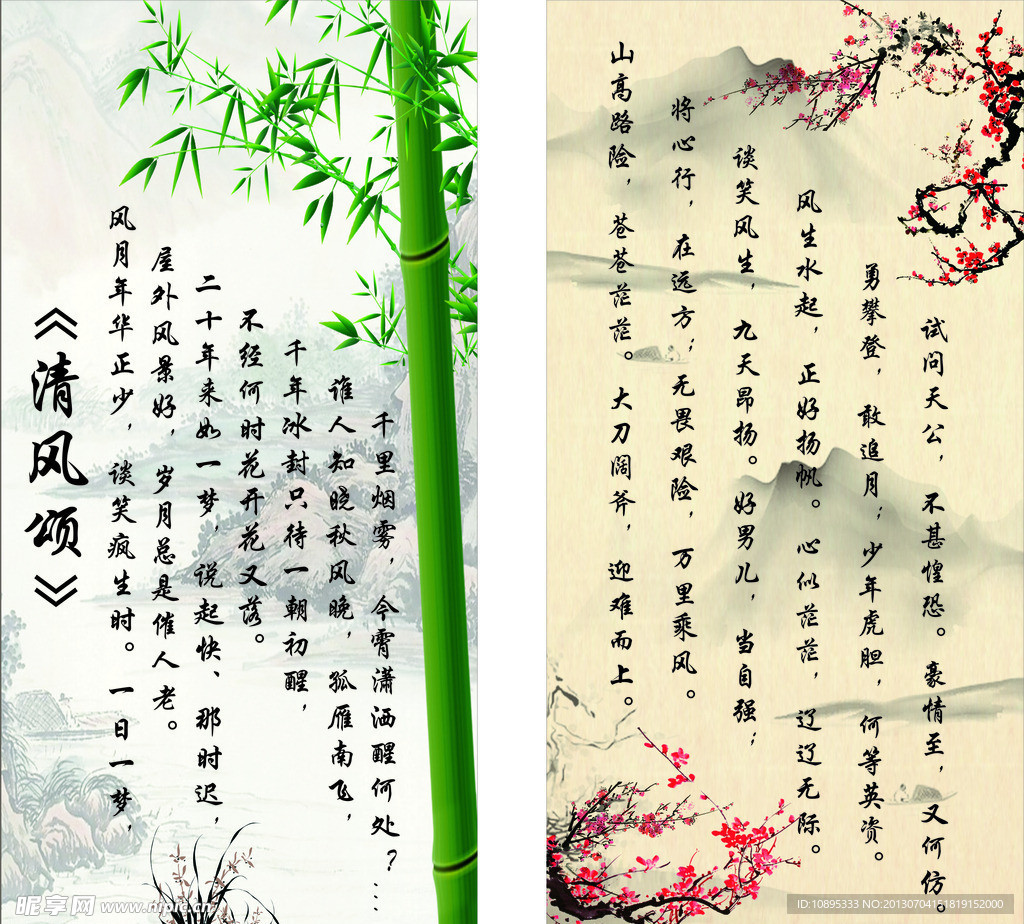 《清风颂》
风月年华正少，谈笑疯生时。一日一梦，
屋外风景好，岁月总是催人老。
二十年来如一梦，说起快、那时迟，
不经何时花开花又落。
千年冰封只待一朝初醒，
谁人知晓秋风晚，孤雁南飞，
千里烟雾，今霄潇洒醒何处？...
山高路险，苍苍茫茫。大刀阔斧，迎难而上。
将心行，在远方；无畏艰险，万里乘风。
谈笑风生，九天昂扬。好男儿，当自强；
风生水起，正好扬帆。心似茫茫，辽辽无际。
勇攀登，敢追月；少年虎胆，何等英资。
试问天公，不甚惶恐。豪情至，又何仿。
昵享网 www.nipic.cn
ID:10895333 NO:20130704151819152000